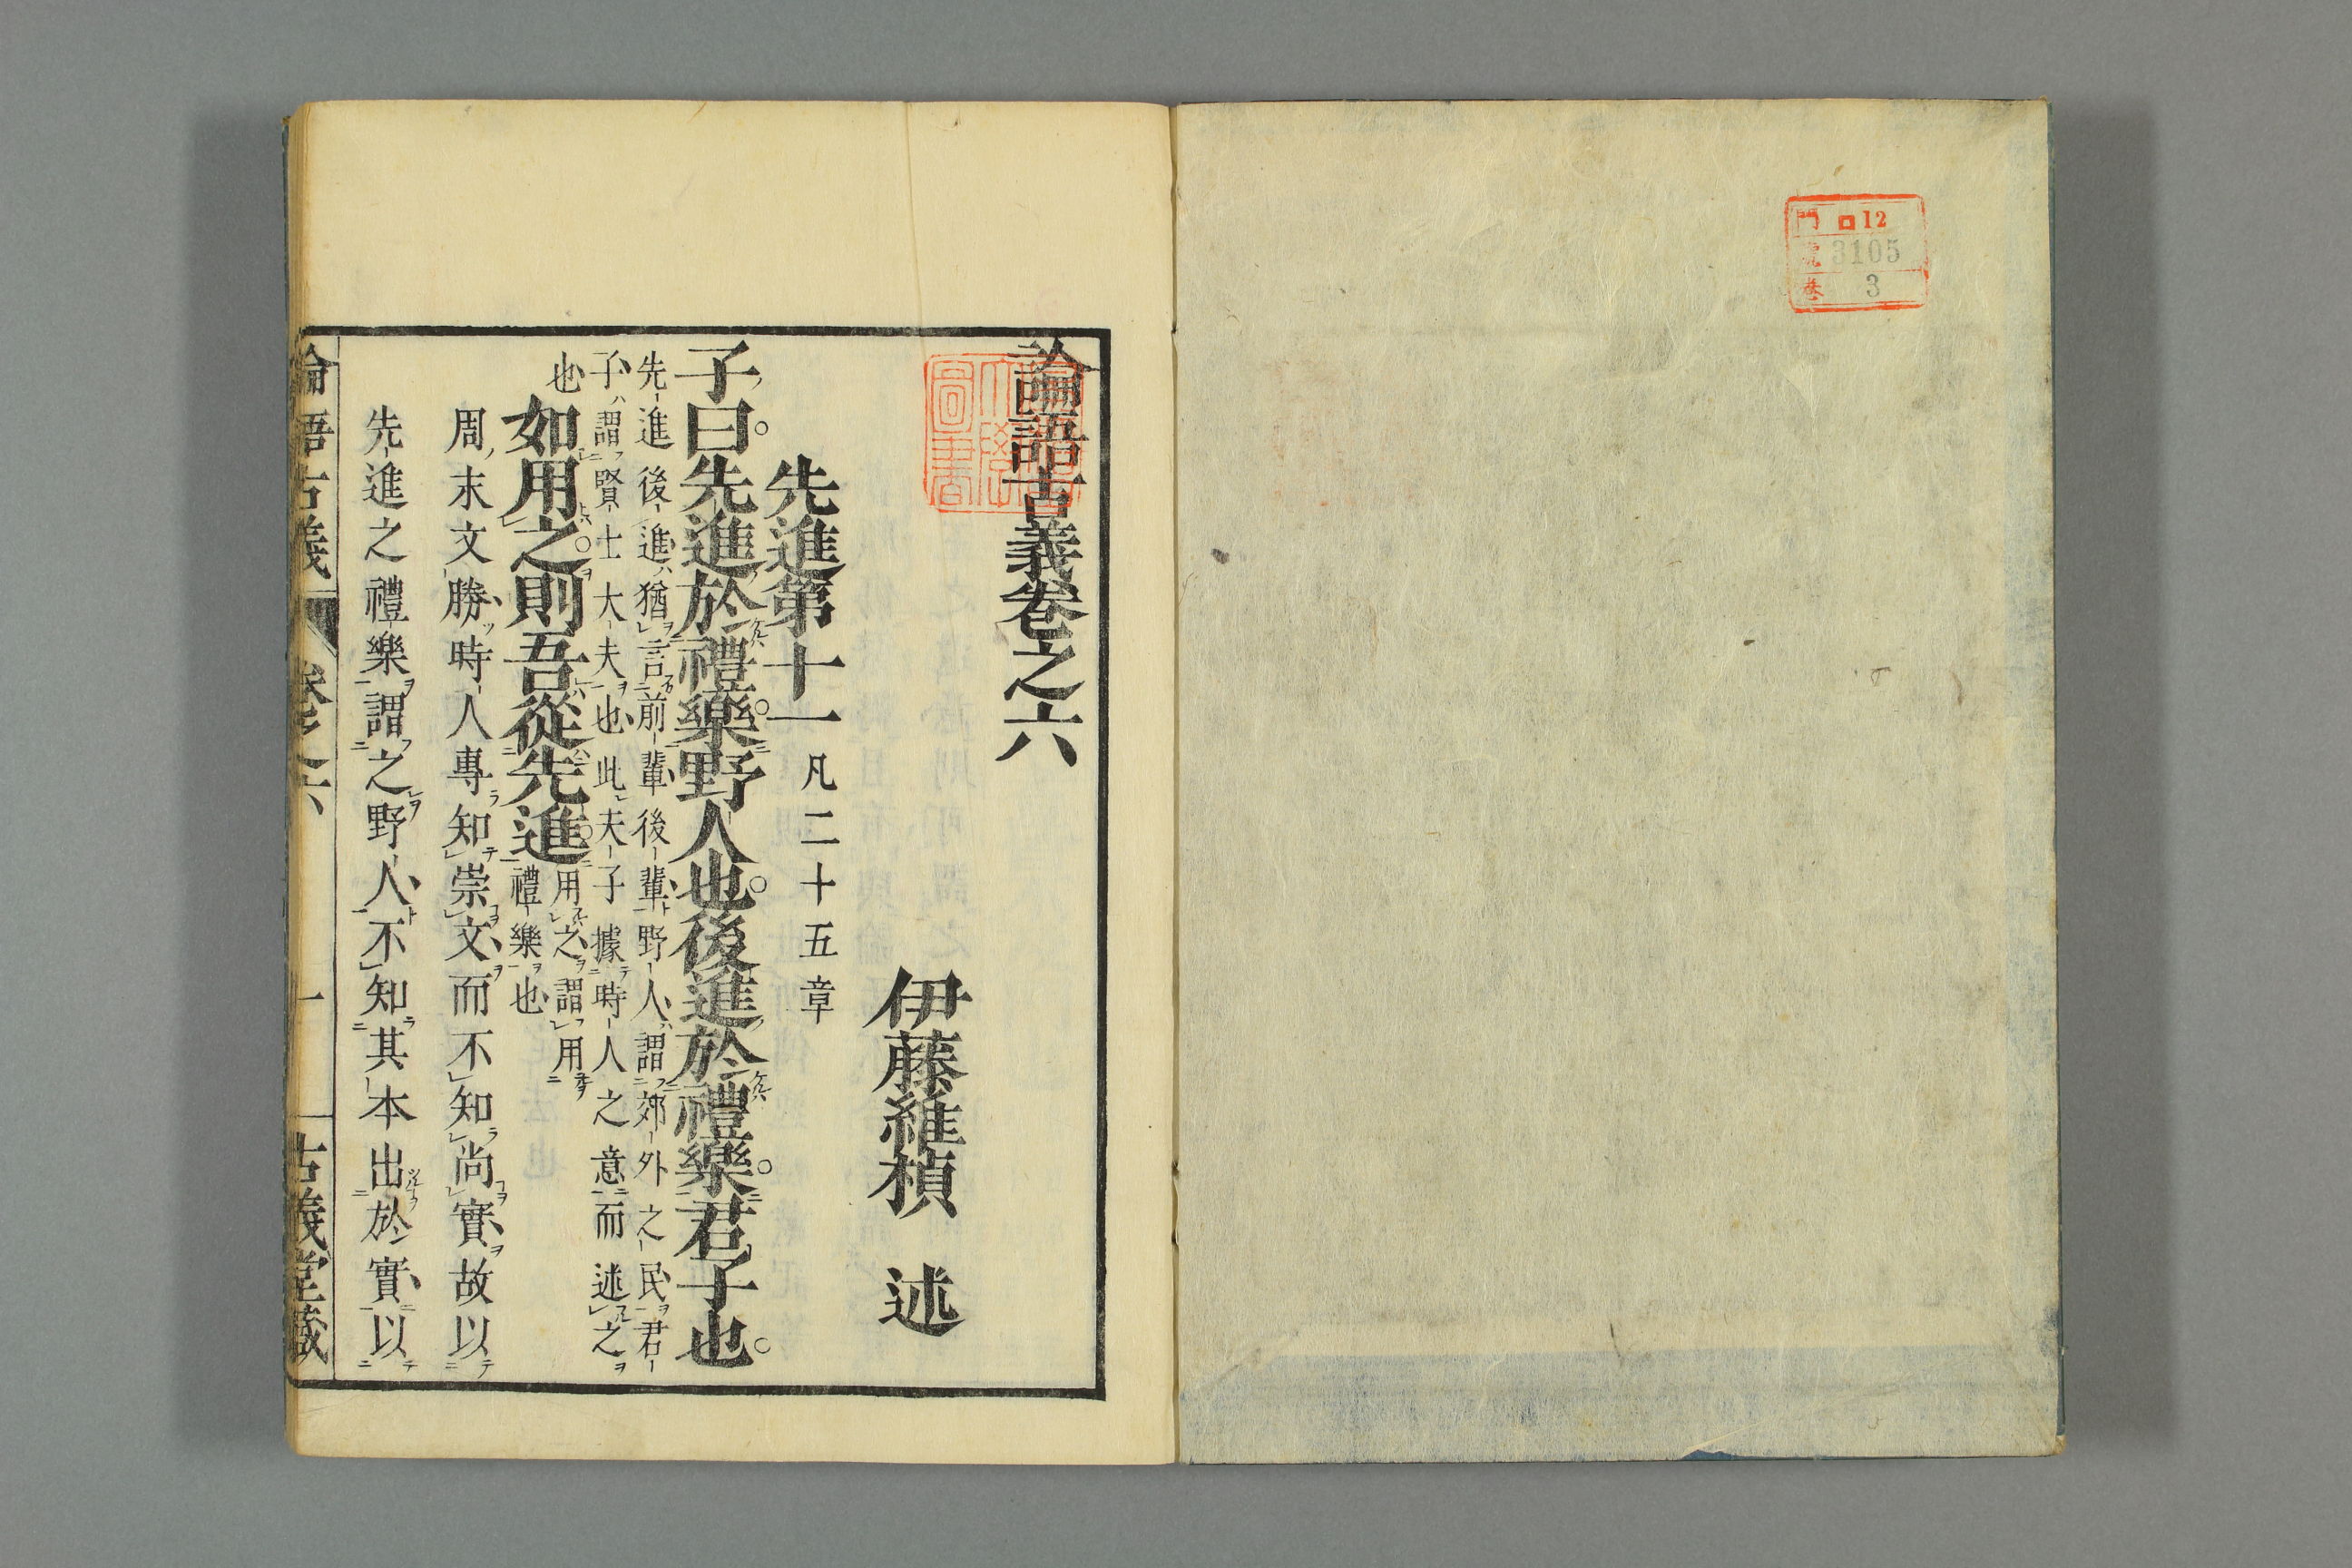 門 ロ12
號 3105
卷 3
論語古義卷之六
伊藤維楨 述
先進第十一凡二十五章
子曰。先進於禮樂。野人也。後進於禮樂。君子也。
先進後進猶言前輩後輩野人謂郊外之民君
子謂賢士大夫也此夫子據時人之意而述之
也
如用之。則吾從先進。
用之謂用
禮樂也
周末文勝時人專知崇文而不知尚實故以
先進之禮樂謂之野人不知其本出於實以
論語古義 卷之六 一 古義堂藏